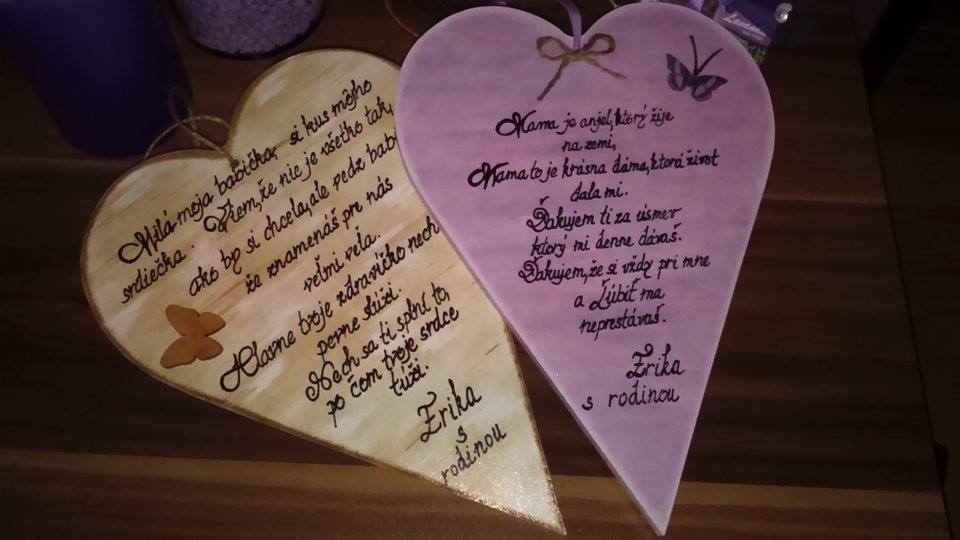 Milá moja babička, si kus môjho
srdiečka. Viem, že nic je všetko tak,
ako by si chcela, ale vedz babi
že znamenáš pre nás
veľmi veľa.
Hlavne tvoje zdravíčko nech
pevne slúži.
Nech sa ti splní to,
po čom tvoje srdce
túži.
Erika
s
rodinou
Mama je anjel, ktorý žije
na zemi,
Mama to je krásna dáma, ktorá život
dala mi.
Ďakujem ti za úsmev
ktorý mi denne dávaš.
Ďakujem, že si vždy pri mne
a Ľúbiť ma
neprestávaš.
Erika
s rodinou